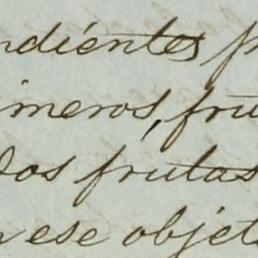 ndientes p
imeros, fru
dos frutas
n ese objeto